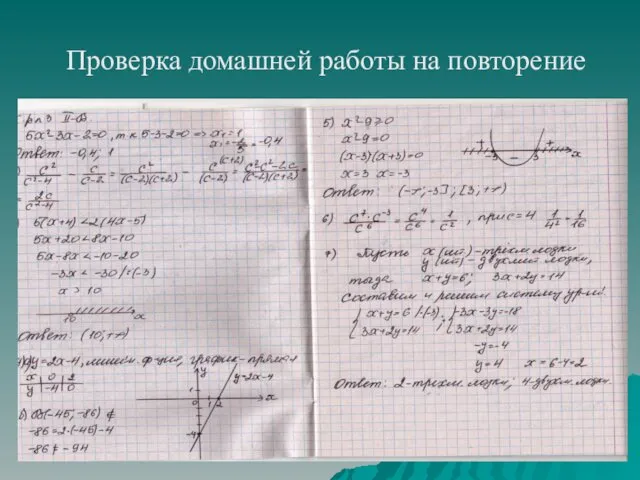 Проверка домашней работы на повторение
5x²-3x-2=0, т.к 5-3-2=0 => x₁=1
x₂=-2/5=-0,4
Ответ: -0,4; 1
c²/(c²-4) - c/(c-2) = c²/((c-2)(c+2)) - c(c+2)/((c-2)(c+2)) =
5(x+4)<2(4x-5)
5x+20<8x-10
5x-8x<-10-20
-3x<-30/:(-3)
x>10
10 x
Ответ: (10;+∞)
y=2x-4, линейн. ф-ция, график-прямая
x 0 2
y -4 0
y y=2x-4
1
0 1 2 x
-4
(-45;-86)
-86=2·(-45)-4
-86≠-94
5) x²-9≥0
x²-9=0
(x-3)(x+3)=0
x=3 x=-3
+ - +
-3 3 x
Ответ: (-∞;-3];[3;+∞)
6) c⁷·c⁻³/c⁶ = c⁴/c⁶ = 1/c², при c=4 1/4²=1/16
7) Пусть x (шт)-трехм лодки
y (шт)-двухмест лодки,
тогда x+y=6; 3x+2y=14
Составим и решим систему ур-ий
x+y=6 /·(-3) -3x-3y=-18
3x+2y=14 3x+2y=14
-y=-4
y=4 x=6-4=2
Ответ: 2-трехм. лодки; 4-двухм. лодки.